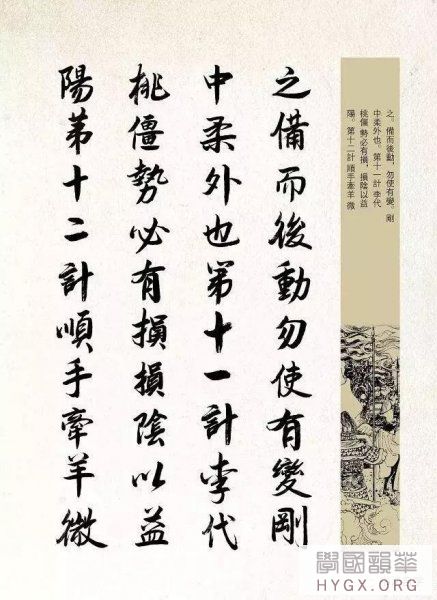 之備而後動勿使有變剛
中柔外也第十一計李代
桃僵勢必有損損陰以益
陽第十二計順手牽羊微
之。備而後動，勿使有變。剛
中柔外也。第十一計 李代
桃僵 勢必有損，損陰以益
陽。第十二計 順手牽羊 微
學國韻華
HYGX.ORG